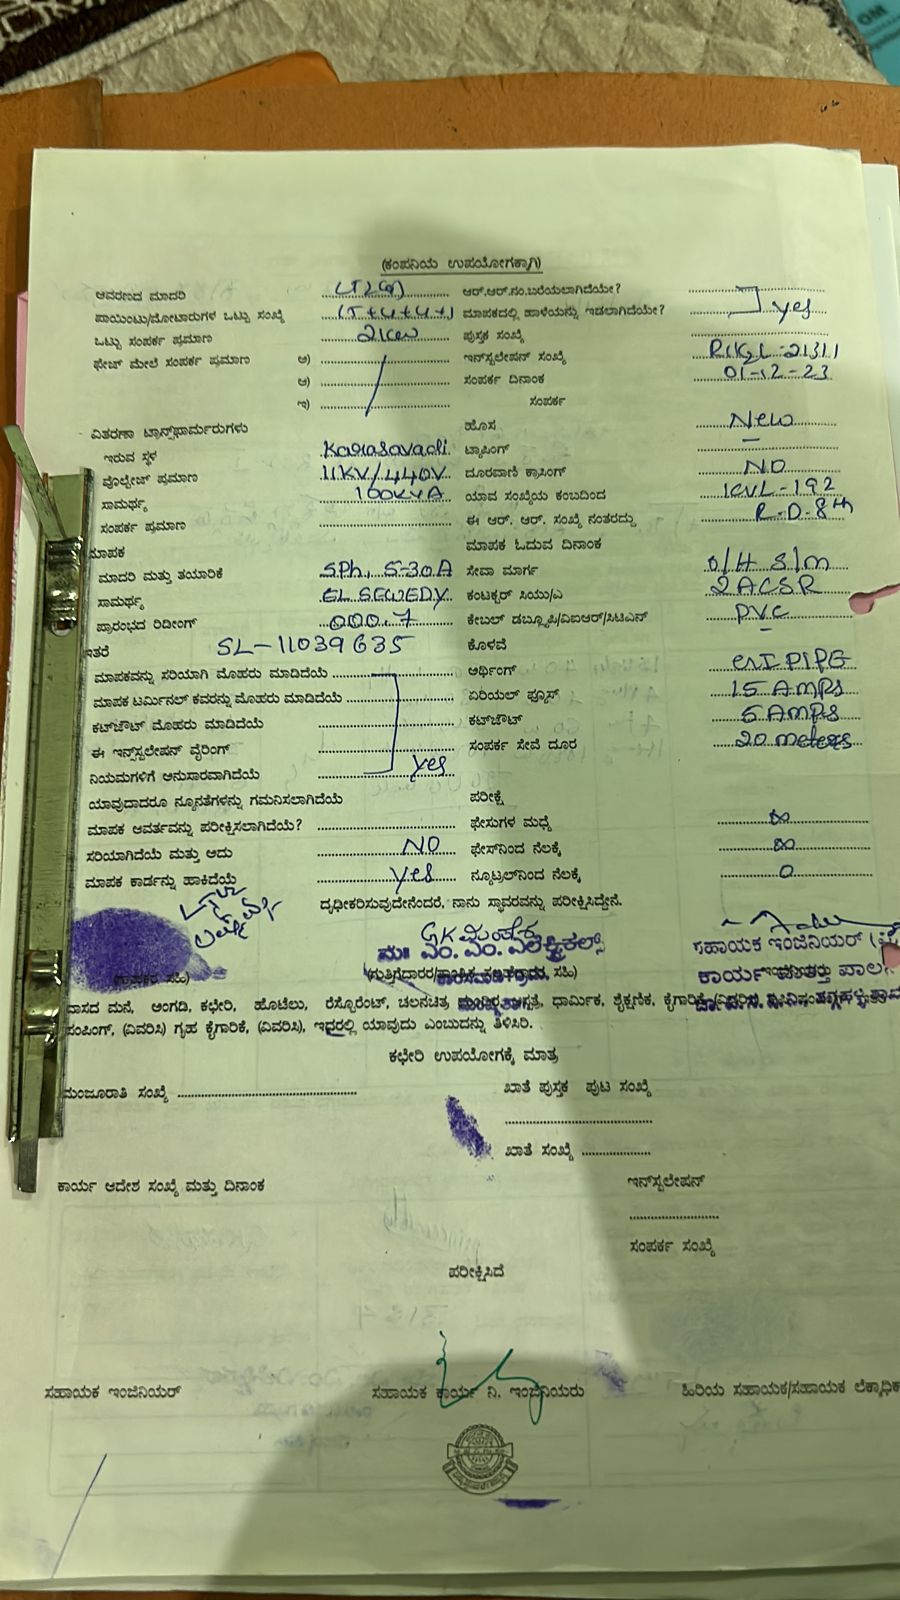 (ಕಂಪನಿಯ ಉಪಯೋಗಕ್ಕಾಗಿ)
ಆವರಣದ ಮಾದರಿ ಆರ್.ಆರ್.ನಂ.ಬರೆಯಲಾಗಿದೆಯೇ?
ಪಾಯಿಂಟು/ಮೋಟಾರುಗಳ ಒಟ್ಟು ಸಂಖ್ಯೆ ಮಾಪಕದಲ್ಲಿ ಹಾಳೆಯನ್ನು ಇಡಲಾಗಿದೆಯೇ? yes
ಒಟ್ಟು ಸಂಪರ್ಕ ಪ್ರಮಾಣ ಪುಸ್ತಕ ಸಂಖ್ಯೆ
ಫೇಜ್ ಮೇಲೆ ಸಂಪರ್ಕ ಪ್ರಮಾಣ ಅ) ಇನ್‌ಸ್ಟಲೇಷನ್ ಸಂಖ್ಯೆ
ಆ) ಸಂಪರ್ಕ ದಿನಾಂಕ 01-12-23
ಇ) ಸಂಪರ್ಕ
ವಿತರಣಾ ಟ್ರಾನ್ಸ್‌ಫಾರ್ಮರುಗಳು ಹೊಸ New
ಇರುವ ಸ್ಥಳ Karasavadi ಟ್ಯಾಪಿಂಗ್ -
ವೊಲ್ಟೇಜ್ ಪ್ರಮಾಣ 11KV/440V ದೂರವಾಣಿ ಕ್ರಾಸಿಂಗ್ NO
ಸಾಮರ್ಥ್ಯ 100KVA ಯಾವ ಸಂಖ್ಯೆಯ ಕಂಬದಿಂದ KVL-192
ಸಂಪರ್ಕ ಪ್ರಮಾಣ ಈ ಆರ್. ಆರ್. ಸಂಖ್ಯೆ ನಂತರದ್ದು R-D-8th
ಮಾಪಕ ಮಾಪಕ ಓದುವ ದಿನಾಂಕ
ಮಾದರಿ ಮತ್ತು ತಯಾರಿಕೆ SPh, 5-30A ಸೇವಾ ಮಾರ್ಗ O/H S/m
ಸಾಮರ್ಥ್ಯ EL SEWEDY ಕಂಟಕ್ಟರ್ ಸಿಯು/ಎ 2 ACSR
ಪ್ರಾರಂಭದ ರಿಡಿಂಗ್ 000.7 ಕೇಬಲ್ ಡಬ್ಲ್ಯೂಪಿ/ವಿಐಆರ್/ಸಿಟಿಎನ್ PVC
ಇತರೆ SL-11039635 ಕೊಳವೆ -
ಮಾಪಕವನ್ನು ಸರಿಯಾಗಿ ಮೊಹರು ಮಾಡಿದೆಯೆ ಅರ್ಥಿಂಗ್ PIPE
ಮಾಪಕ ಟರ್ಮಿನಲ್ ಕವರನ್ನು ಮೊಹರು ಮಾಡಿದೆಯೆ ಏರಿಯಲ್ ಫ್ಯೂಸ್ 15 AMPS
ಕಟ್‌ಔಟ್ ಮೊಹರು ಮಾಡಿದೆಯೆ ಕಟ್‌ಔಟ್ 5 AMPS
ಈ ಇನ್‌ಸ್ಟಲೇಷನ್ ವೈರಿಂಗ್ ಸಂಪರ್ಕ ಸೇವೆ ದೂರ 20 meters
ನಿಯಮಗಳಿಗೆ ಅನುಸಾರವಾಗಿದೆಯೆ yes
ಯಾವುದಾದರೂ ನ್ಯೂನತೆಗಳನ್ನು ಗಮನಿಸಲಾಗಿದೆಯೆ ಪರೀಕ್ಷೆ
ಮಾಪಕ ಆವರ್ತವನ್ನು ಪರೀಕ್ಷಿಸಲಾಗಿದೆಯೆ? ಫೇಸುಗಳ ಮಧ್ಯೆ ∞
ಸರಿಯಾಗಿದೆಯೆ ಮತ್ತು ಅದು NO ಫೇಸ್‌ನಿಂದ ನೆಲಕ್ಕೆ ∞
ಮಾಪಕ ಕಾರ್ಡನ್ನು ಹಾಕಿದೆಯೆ Yes ನ್ಯೂಟ್ರಲ್‌ನಿಂದ ನೆಲಕ್ಕೆ 0
ದೃಢೀಕರಿಸುವುದೇನೆಂದರೆ, ನಾನು ಸ್ಥಾವರವನ್ನು ಪರೀಕ್ಷಿಸಿದ್ದೇನೆ.
ಮೆ|| ಎಂ. ಎಂ. ಎಲೆಕ್ಟ್ರಿಕಲ್ಸ್ ಸಹಾಯಕ ಇಂಜಿನಿಯರ್
(ಗ್ರಾಹಕರ ಸಹಿ) ಸಹಿ) ಕಾರ್ಯ ಮತ್ತು ಪಾಲನೆ
ವಾಸದ ಮನೆ, ಅಂಗಡಿ, ಕಛೇರಿ, ಹೊಟೆಲು, ರೆಸ್ಟೊರೆಂಟ್, ಚಲನಚಿತ್ರ ಧಾರ್ಮಿಕ, ಶೈಕ್ಷಣಿಕ, ಕೈಗಾರಿಕೆ
ಪಂಪಿಂಗ್, (ವಿವರಿಸಿ) ಗೃಹ ಕೈಗಾರಿಕೆ, (ವಿವರಿಸಿ), ಇದರಲ್ಲಿ ಯಾವುದು ಎಂಬುದನ್ನು ತಿಳಿಸಿರಿ.
ಕಛೇರಿ ಉಪಯೋಗಕ್ಕೆ ಮಾತ್ರ
ಮಂಜೂರಾತಿ ಸಂಖ್ಯೆ ಖಾತೆ ಪುಸ್ತಕ ಪುಟ ಸಂಖ್ಯೆ
ಖಾತೆ ಸಂಖ್ಯೆ
ಕಾರ್ಯ ಆದೇಶ ಸಂಖ್ಯೆ ಮತ್ತು ದಿನಾಂಕ ಇನ್‌ಸ್ಟಲೇಷನ್
ಸಂಪರ್ಕ ಸಂಖ್ಯೆ
ಪರೀಕ್ಷಿಸಿದೆ
ಸಹಾಯಕ ಇಂಜಿನಿಯರ್ ಸಹಾಯಕ ಕಾರ್ಯ ನಿ. ಇಂಜಿನಿಯರು ಹಿರಿಯ ಸಹಾಯಕ/ಸಹಾಯಕ ಲೆಕ್ಕಾಧಿಕ